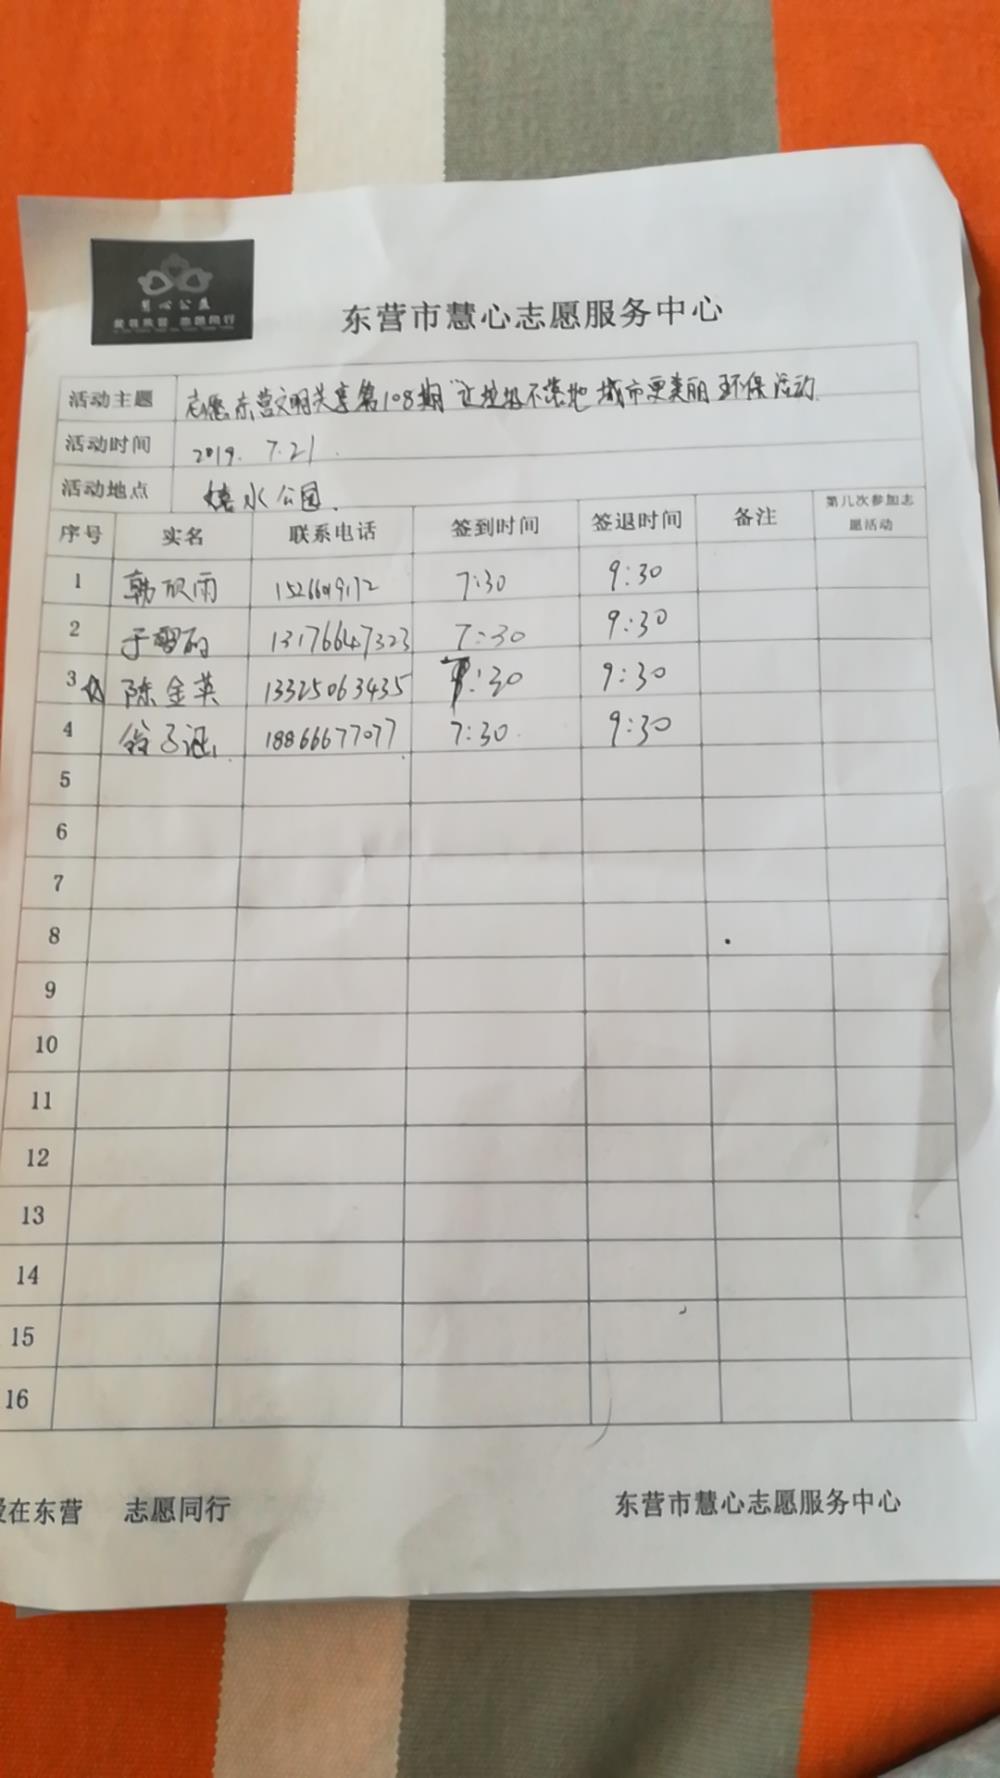 慧心公益
爱在东营 志愿同行
东营市慧心志愿服务中心
活动主题 志愿东营文明共享第108期"让垃圾不落地 城市更美丽 环保活动
活动时间 2019. 7.21.
活动地点 水公园.
序号 实名 联系电话 签到时间 签退时间 备注 第几次参加志愿活动
1 韩欣雨 7:30 9:30
2 于 13176647323 7:30 9:30
3 陈金英 13325063435 7:30 9:30
4 子涵 18866677077 7:30. 9:30
5
6
7
8
9
10
11
12
13
14
15
16
爱在东营 志愿同行 东营市慧心志愿服务中心